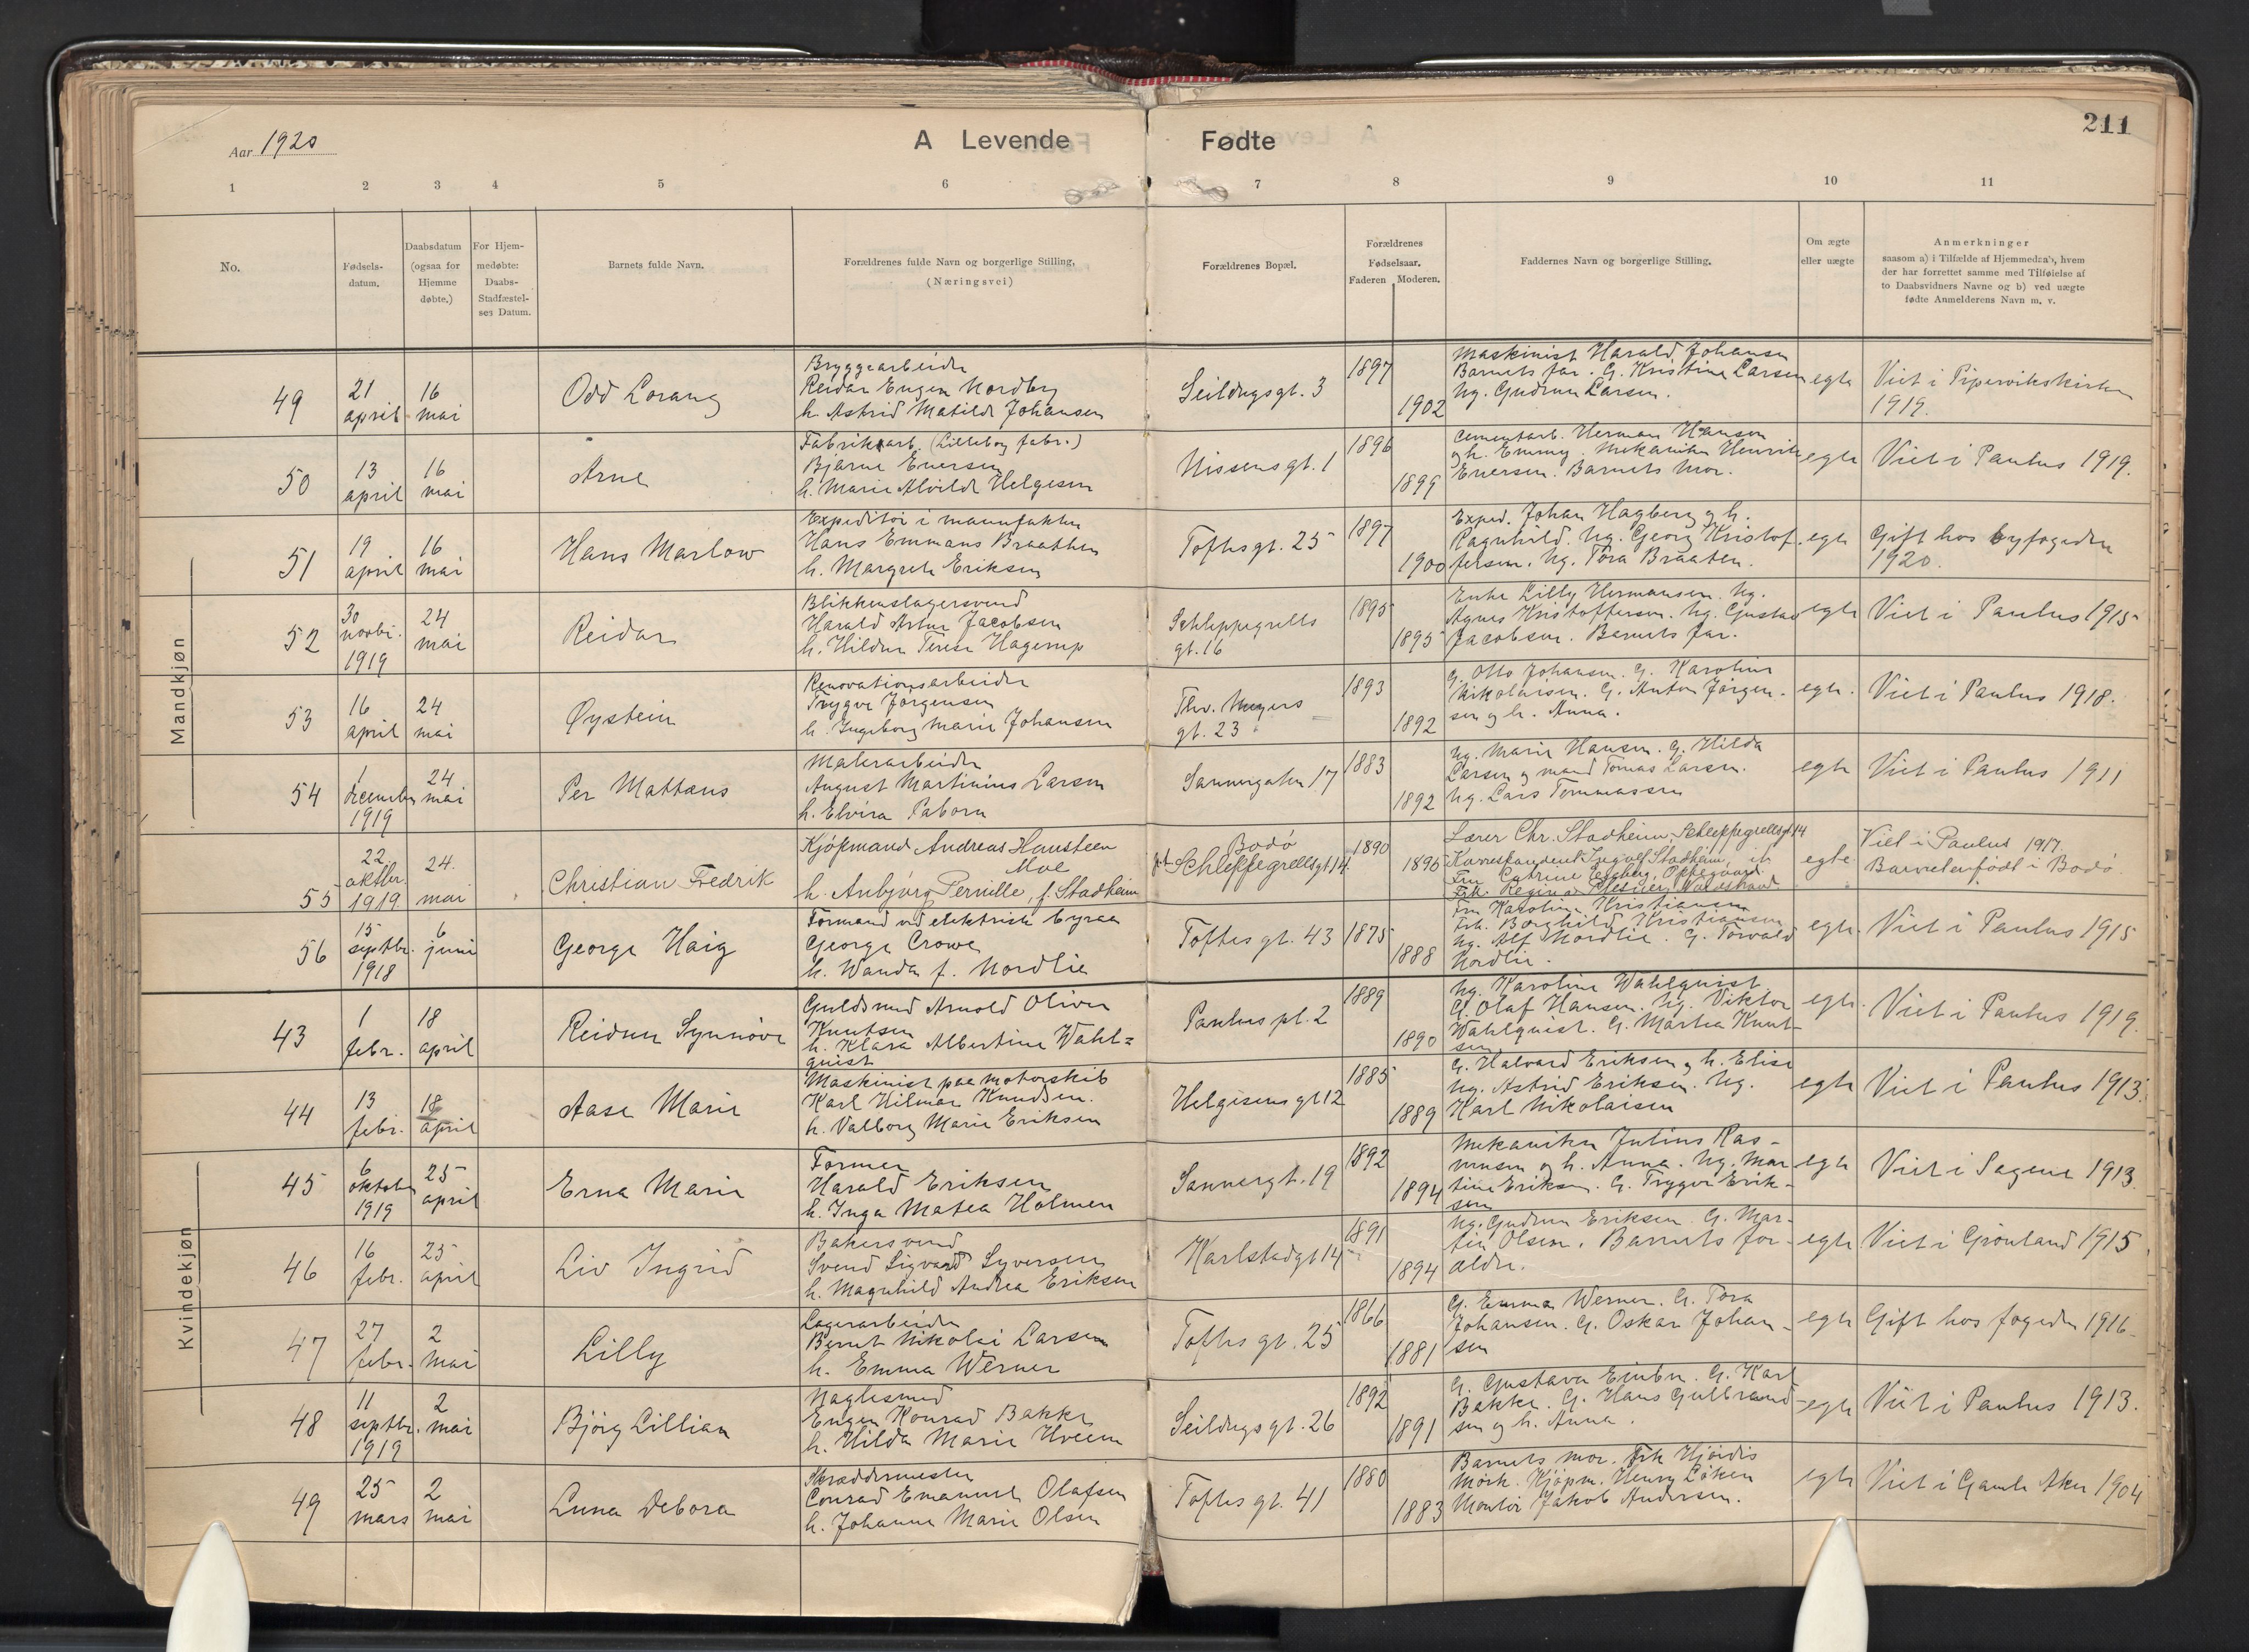 211
Aar 1920
A Levende Fødte
1 2 3 4 5 6 7 8 9 10 11
No.
Fødsels-
datum.
Daabsdatum
(ogsaa for
Hjemme
døbte.)
For Hjem-
medøbte:
Daabs-
Stadfæstel-
ses Datum.
Barnets fulde Navn.
Forældrenes fulde Navn og borgerlige Stilling.
(Næringsvei)
Forældrenes Bopæl.
Forældrenes
Fødselsaar.
Faderen Moderen.
Faddernes Navn og borgerlige Stilling.
Om ægte
eller uægte
Anmerkninger
saasom a) i Tilfælde af Hjemmedaab, hvem
der har forrettet samme med Tilføielse af
to Daabsvidners Navne og b) ved uægte
fødte Anmelderens Navn m. v.
Mandkjøn
49
21
april
16
mai
Odd Lorang
Bryggearbeider
Reidar Eugen Nordby
h. Astrid Matilde Johansen
Seildugsgt. 3
1897
1902
Maskinist Harald Johansen
Barnets far. G. Kristine Larsen
Ug. Gudrun Larsen.
egte
Viet i Pipervikskirken
1919.
50
13
april
16
mai
Arne
Fabrikarb. (Lilleborg fabr.)
Bjarne Evensen
h. Marie Alvilde Helgesen
Nissens gt. 1
1896
1899
Cementarb. Herman Hansen
og h. Emmy. Mekaniker Henrik
Evensen. Barnets mor.
egte
Viet i Paulus 1919.
51
19
april
16
mai
Hans Marlow
Expeditør i manufaktur
Hans Emmans Braathen
h. Margrete Eriksen
Toftesgt. 25
1897
1900
Exped. Johan Hagberg og h.
Ragnhild. Ug. Georg Kristof-
fersen. Ug. Tora Braaten.
egte
Gift hos byfogden
1920.
52
30
novbr.
1919
24
mai
Reidar
Blikkenslagersvend
Harald Artur Jacobsen
h. Hildur Terese Hagerup
Schleppegrells
gt. 16
1895
1895
Enke Lilly Hermansen. Ug.
Agnes Kristoffersen. Ug. Gustav
Jacobsen. Barnets far.
egte
Viet i Paulus 1915
53
16
april
24
mai
Øystein
Renovationsarbeider
Trygve Jørgensen
h. Ingeborg Marie Johansen
Thv. Meyers
gt. 23
1893
1892
G. Otto Johansen. G. Karoline
Nikolaisen. G. Anton Jørgen-
sen og h. Anna.
egte.
Viet i Paulus 1918.
54
1
december
1919
24
mai
Per Mattæus
Malerarbeider
August Martinius Larsen
h. Elvira Paborn
Sannergaten 17
1883
1892
Ug. Marie Hansen. G. Hilda
Larsen og mand Tomas Larsen.
Ug. Lars Tommassen
egte
Viet i Paulus 1911
55
22.
oktbr.
1919
24.
mai
Christian Fredrik
Kjøpmand Andreas Hansteen
Moe
h. Anbjørg Pernille, f. Stadheim
Bodø
Schleppegrellsgt 14
1890
1896
Lærer Chr. Stadheim, Schleppegrellsgt 14
Korrespondent Ingolf Stadheim,
Fru Catrine Oppegaard.
Frk. Regina
egte
Viet i Paulus 1917.
Barnet er født i Bodø
56
15
septbr.
1918
6
juni
George Haig
Formand ved elektrisk byraa
George Crowe
h. Wanda f. Nordlie
Toftes gt. 43
1875
1888
Fru Karoline Kristiansen
Frk. Borghild Kristiansen
Ug. Alf Nordlie. G. Torvald
Nordlie.
egte.
Viet i Paulus 1915
Kvindekjøn
43
1
febr.
18
april
Reidun Synnöve
Guldsmed Arnold Oliver
Knutsen
h. Klara Albertine Wahl=
quist
Paulus pl. 2
1889
1890
Ug. Karoline Wahlquist
G. Olaf Hansen. Ug. Viktor
Wahlquist. G. Martea Knut-
sen
egte.
Viet i Paulus 1919.
44
13
febr.
18
april
Aase Marie
Maskinist paa motorskib
Karl Hilmar Knudsen.
h. Valborg Marie Eriksen
Helgesens gt 12
1885
1889
G. Halvard Eriksen og h. Elise
Ug. Astrid Eriksen. Ug.
Karl Nikolaisen
egte
Viet i Paulus 1913.
45
6
oktober
1919
25
april
Erna Marie
Former
Harald Eriksen
h. Inga Matea Holmen
Sannergt. 19
1892
1894
Mekaniker Julius Ras-
mussen og h. Anna. Ug. Mar
tine Eriksen. G. Trygve Erik-
sen
egte
Viet i Sagene 1913.
46
16
febr.
25
april
Liv Ingrid
Bakersvend
Svend Sigvard Syversen
h. Magnhild Andrea Eriksen
Karlstadgt 14
1891
1894
Ug. Gudrun Eriksen. G. Mar-
tin Olsen. Barnets for-
ældre.
egte
Viet i Grønland 1915
47
27
febr.
2
mai
Lilly
Lagerarbeider
Bernt Nikolai Larsen
h. Emma Werner
Toftes gt. 25
1866
1881
G. Emma Werner. G. Tora
Johansen. G. Oskar Johan-
sen
egte
Gift hos fogden 1916
48
11
septbr.
1919
2
mai
Bjørg Lillian
Naglesmed
Eugen Konrad Bakke
h. Hilda Marie Hveem
Seildugsgt. 26
1892
1891
G. Gustava G. Karl
Bakke. G. Hans Gulbrand-
sen og h. Anna.
egte
Viet i Paulus 1913.
49
25
mars
2
mai
Luna Debora
Skræddermester
Conrad Emanuel Olafsen
h. Johanne Marie Olsen
Toftes gt. 41
1880
1883
Barnets mor. Frk Hjørdis
Mørk. Kjøpm. Henry Løken
Montør Jakob Andersen.
egte
Viet i Gamle Aker 1904